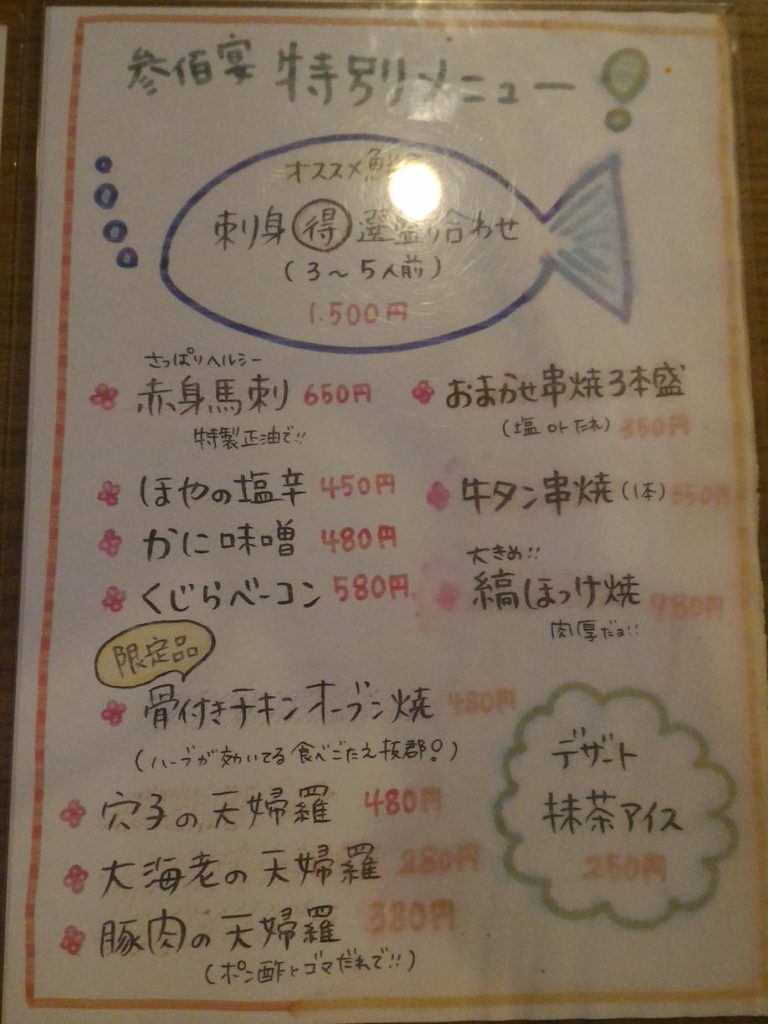 参佰宴 特別メニュー!
オススメ鮮
刺身 得 選盛り合わせ
(3〜5人前)
1.500円
さっぱりヘルシー
赤身馬刺 650円
特製正油で!!
ほやの塩辛 450円
かに味噌 480円
くじらベーコン 580円
おまかせ串焼3本盛
(塩 or たれ) 350円
牛タン串焼(1本) 350円
大きめ!!
縞ほっけ焼 780円
肉厚だョ!!
限定品
骨付きチキンオーブン焼 480円
(ハーブが効いてる食べごたえ抜群!)
穴子の天婦羅 480円
大海老の天婦羅 280円
豚肉の天婦羅 380円
(ポン酢とゴマだれで!!)
デザート
抹茶アイス
250円